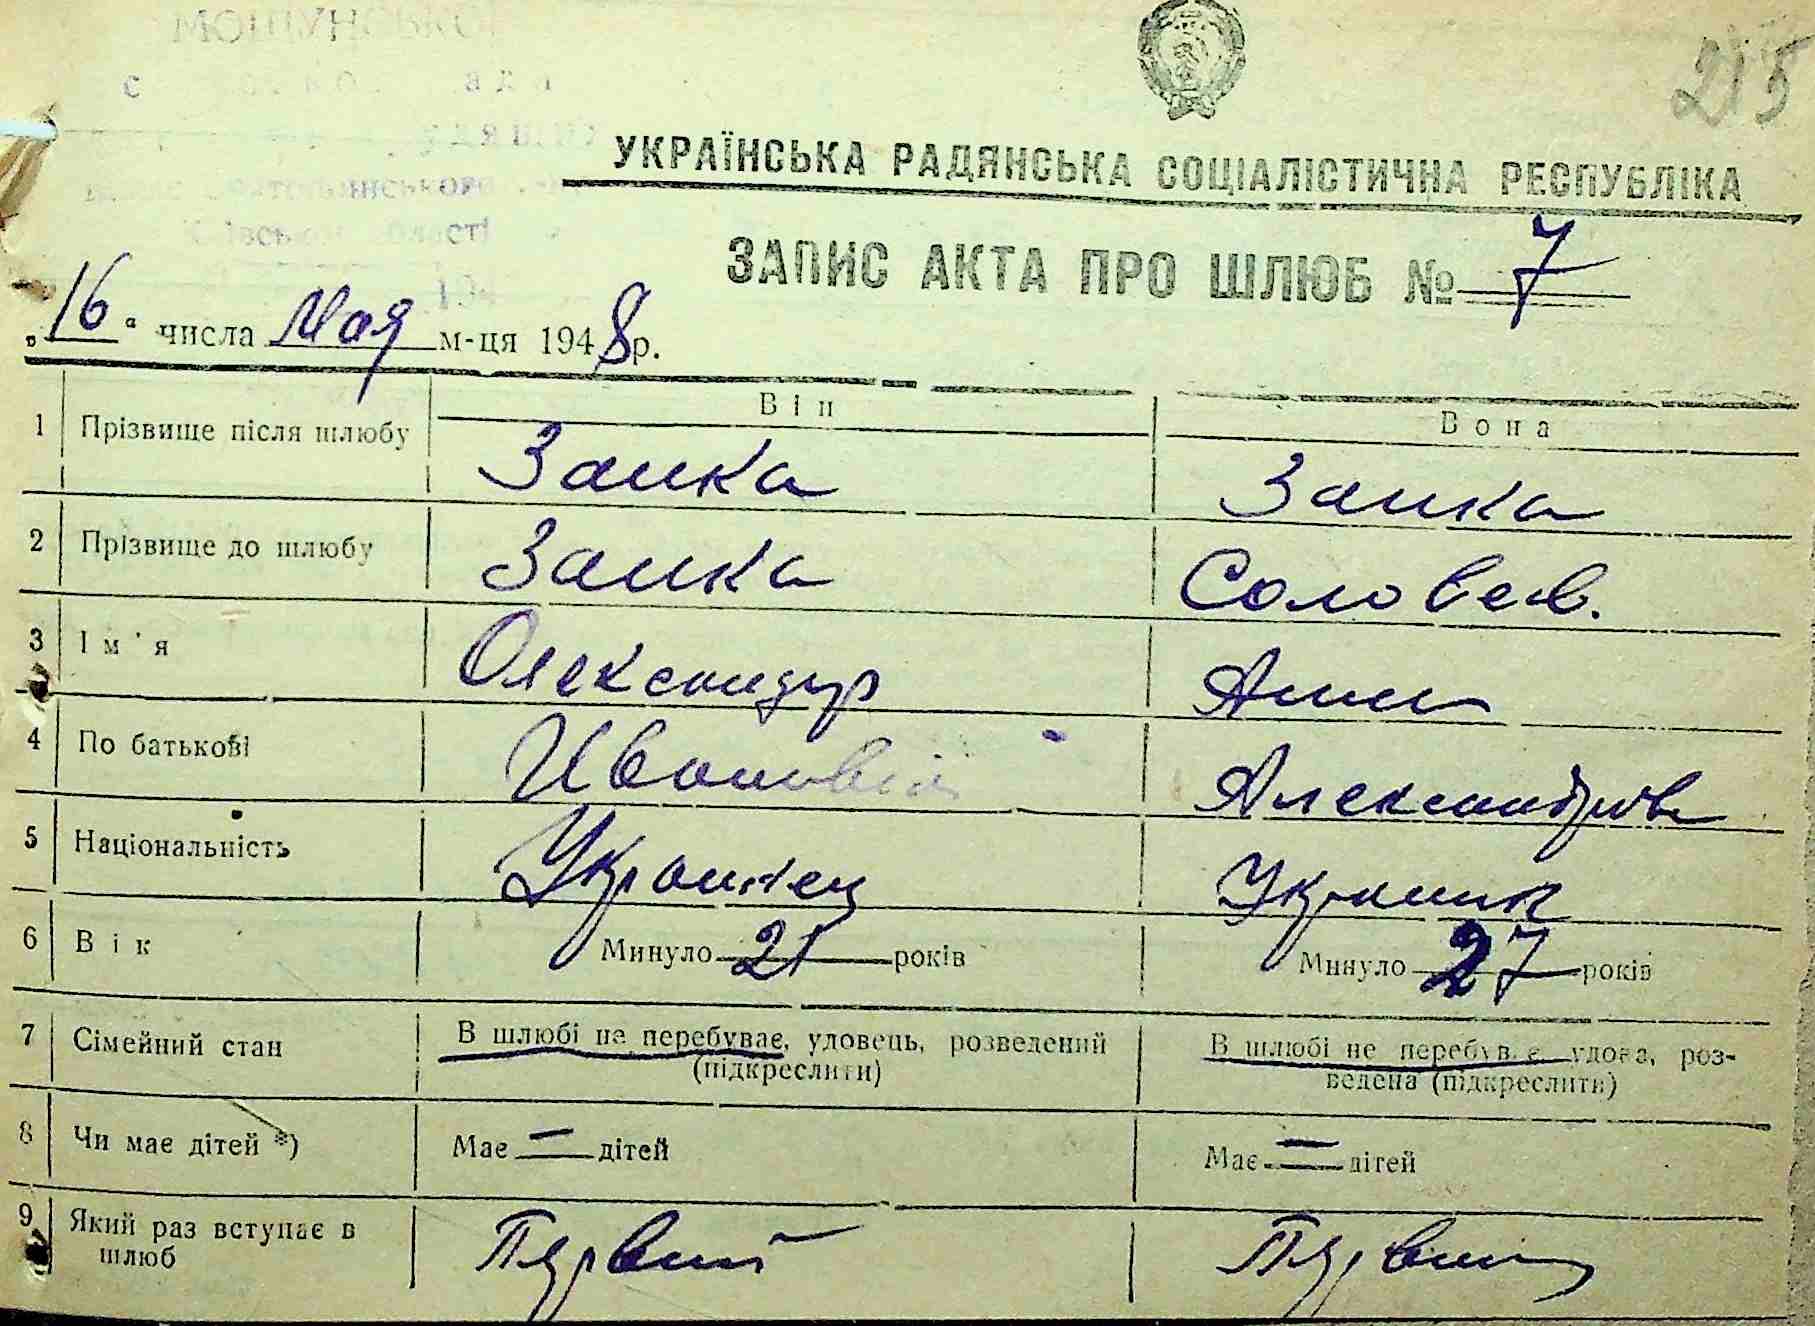 МОЩУНСЬКОЇ
області
194
215
УКРАЇНСЬКА РАДЯНСЬКА СОЦІАЛІСТИЧНА РЕСПУБЛІКА
ЗАПИС АКТА ПРО ШЛЮБ № 7
„16“ числа Мая м-ця 1948 р.
Він Вона
1 Прізвище після шлюбу Заика Заика
2 Прізвище до шлюбу Заика Соловев.
3 Ім'я Олександр Анна
4 По батькові Ивановіч Александровн
5 Національність Украинец Украинк
6 Вік Минуло 21 років Минуло 27 років
7 Сімейний стан В шлюбі не перебуває, удовець, розведений В шлюбі не перебуває, удова, роз-
(підкреслити) ведена (підкреслити)
8 Чи має дітей *) Має — дітей Має — дітей
9 Який раз вступає в Первий Первий
шлюб